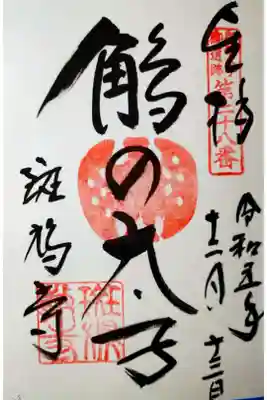 奉拝
遺跡第二十八番
令和五年
十二月十三日
鵤の太子
斑鳩寺